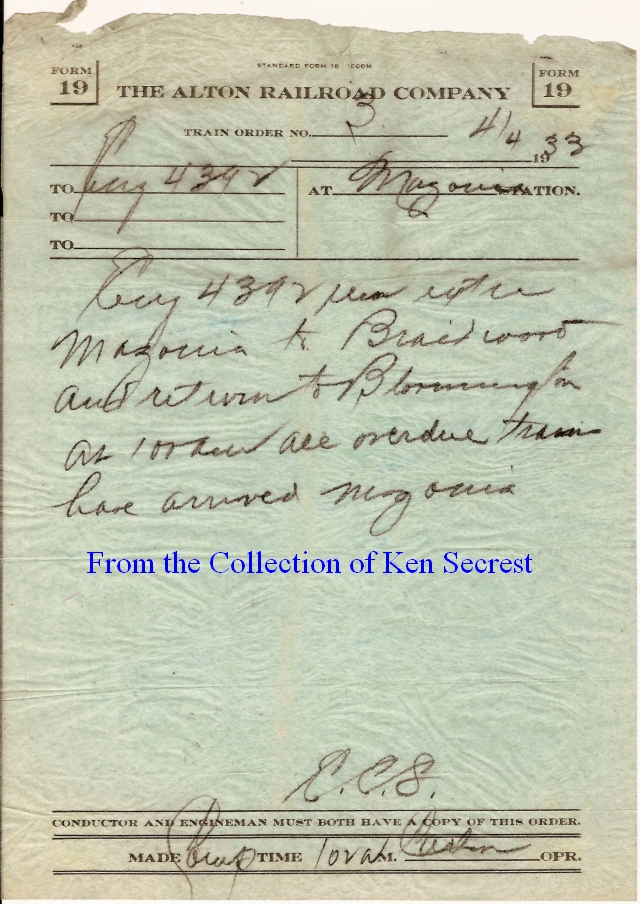 STANDARD FORM 19 1000M
FORM 19
FORM 19
THE ALTON RAILROAD COMPANY
TRAIN ORDER NO. 3 4/4 1933
TO Eng 4392 AT Mazonia STATION.
TO
TO
Eng 4392 run extra
Mazonia to Braidwood
and return to Bloomington
at 100 am all overdue trains
have arrived Mazonia
From the Collection of Ken Secrest
E.C.S.
CONDUCTOR AND ENGINEMAN MUST BOTH HAVE A COPY OF THIS ORDER.
MADE Comp TIME 102 A M. OPR.